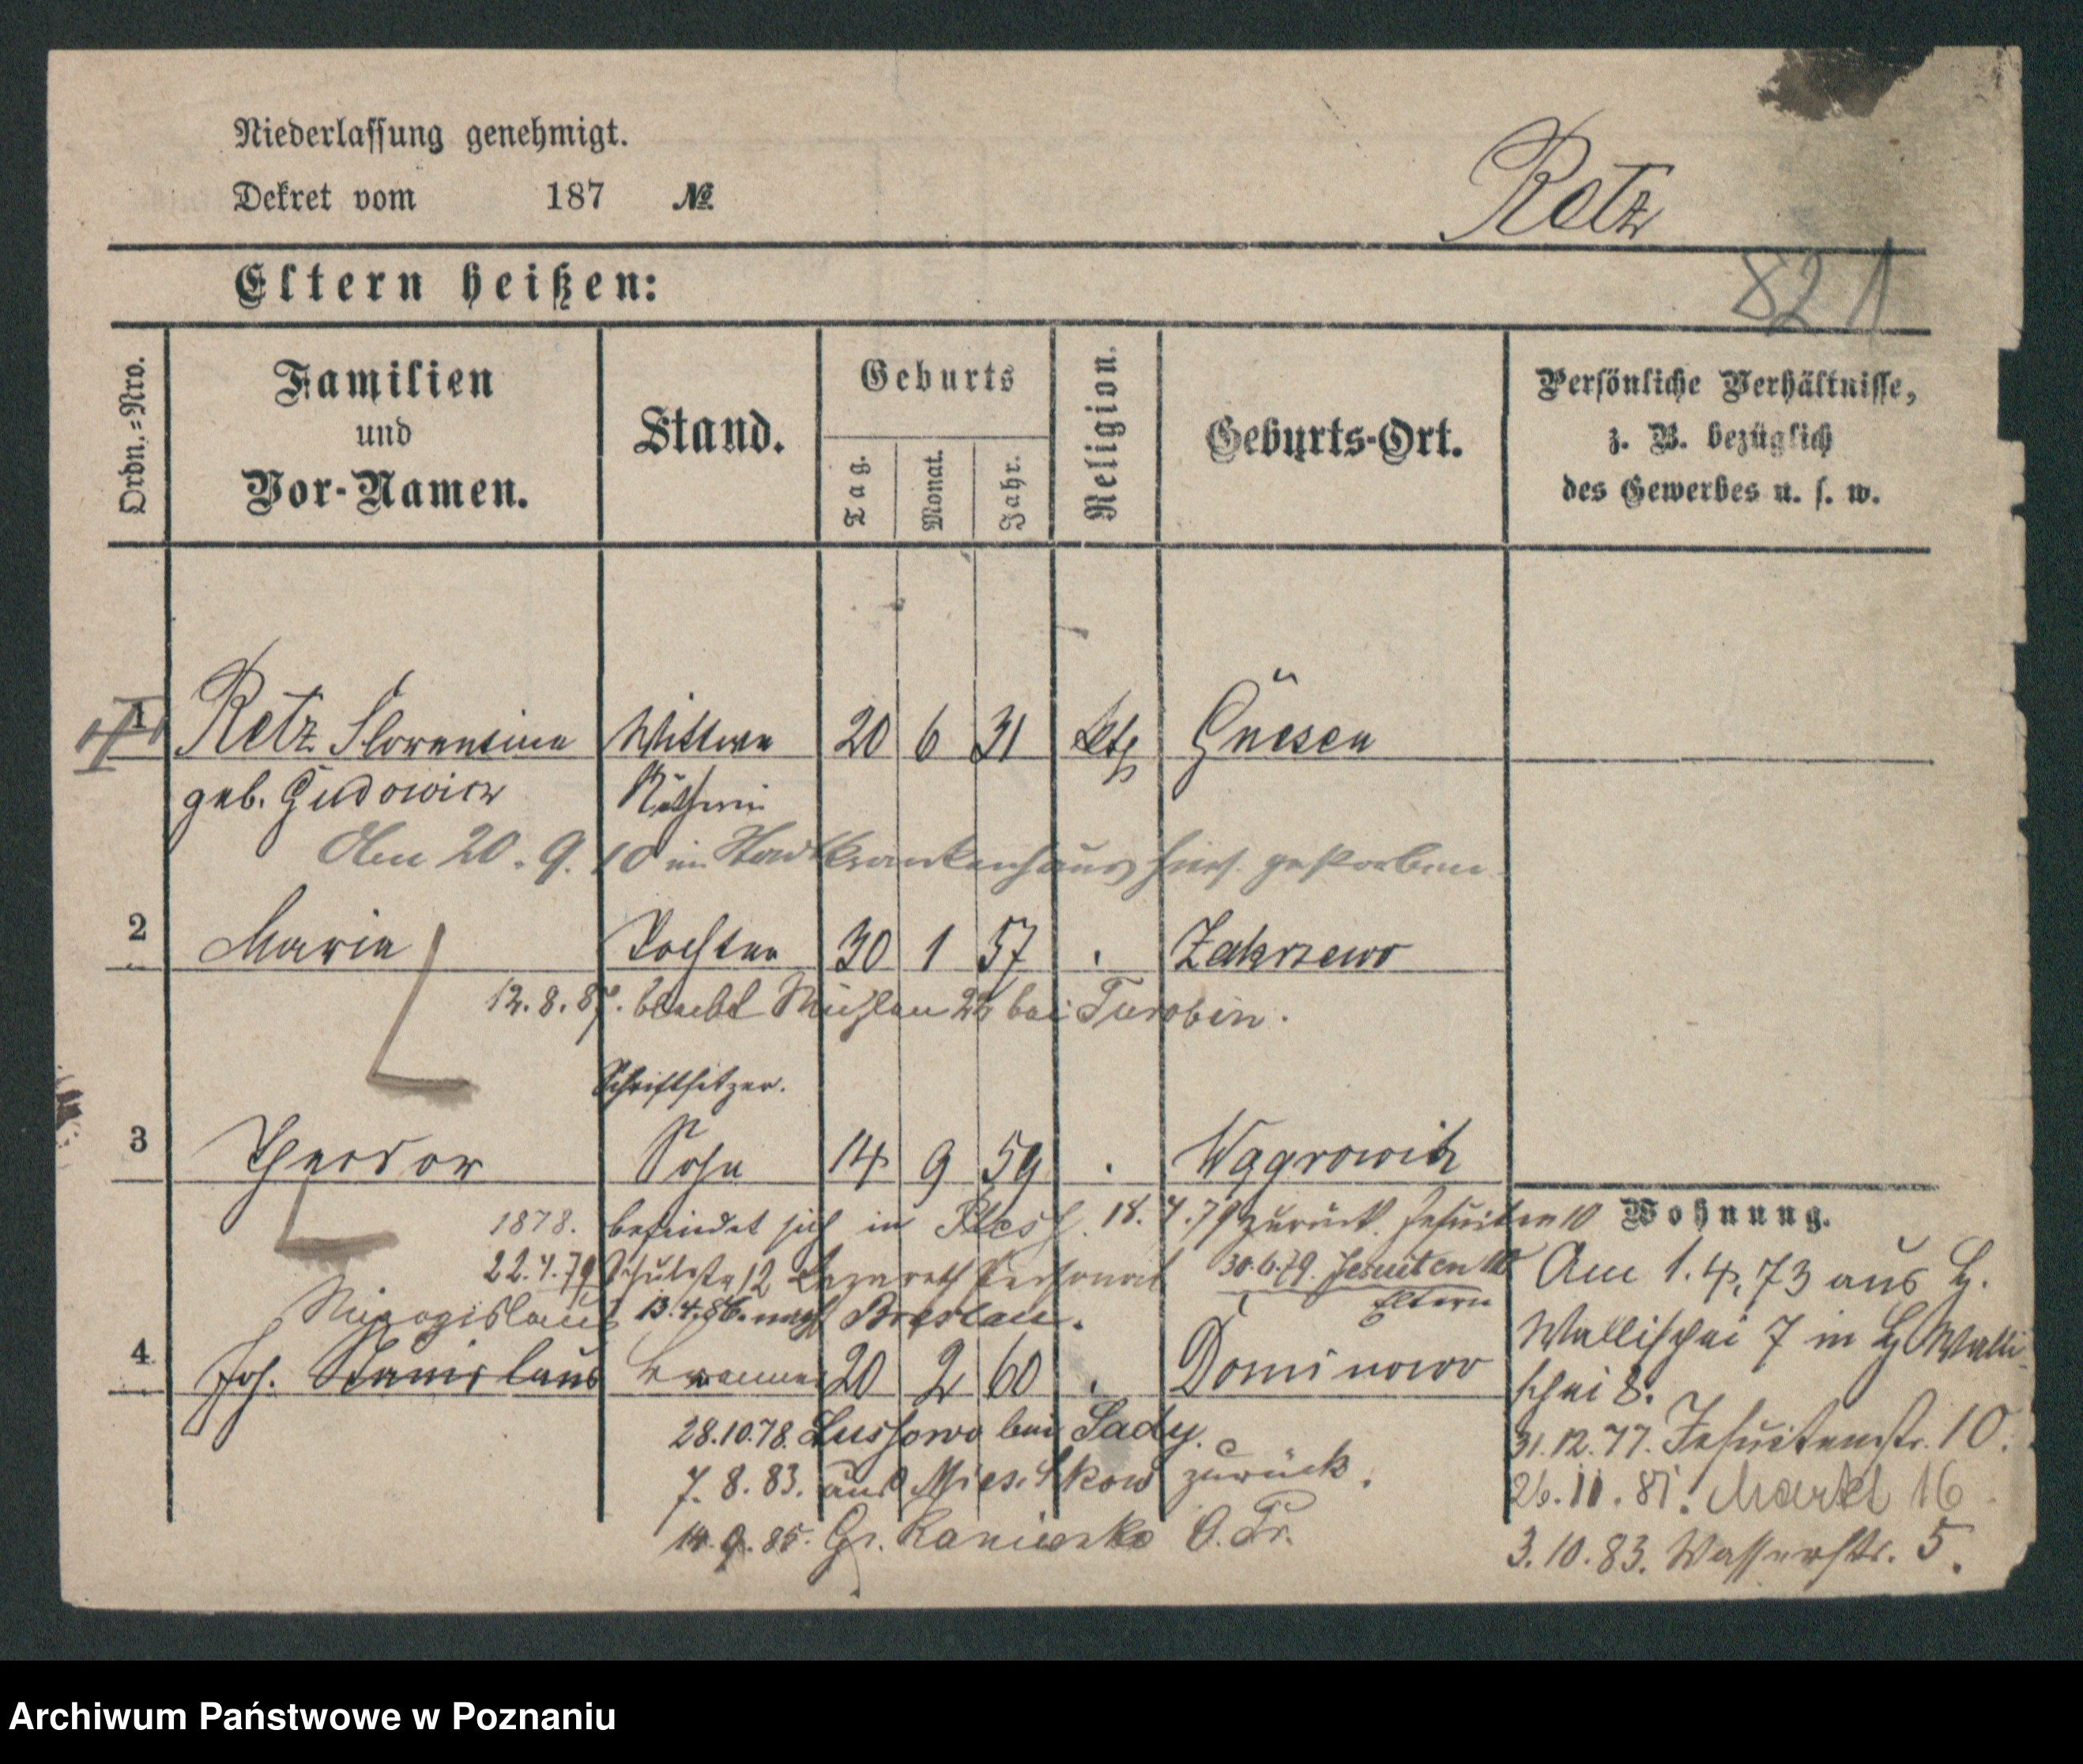 Niederlassung genehmigt.
Dekret vom 187 №
Retz
821
Eltern heißen:
Ordn.=Nro.
Familien
und
Vor-Namen.
Stand.
Geburts
Tag.
Monat.
Jahr.
Religion.
Geburts-Ort.
Persönliche Verhältnisse,
z. B. bezüglich
des Gewerbes u. s. w.
1 Retz Florentine Wittwe 20 6 31 kath Gnesen
geb. Gudowicz Näherin
Den 20. 9. 10 im Stadtkrankenhaus hies. gestorben
2 Maria Tochter 30 1 57 Zakrzewo
12. 8. 87. bei Turobin.
Schriftsetzer.
3 Theodor Sohn 14 9 59 Wągrowitz
1878. befindet sich in 18. 7. 79 zurück. Jesuiten 10
22. 7. 79 Schulstr 12 Lazareth Personal 30. 6. 79. Jesuiten 10
Eltern
13. 4. 86. nach Breslau.
4 Joh. Stanislaus 20 2 60 Dominowo
28. 10. 78. Lussowo bei Sady.
7. 8. 83. aus Mieschkow zurück.
14. 9. 85. Gr.
Wohnung.
Am 1. 4. 73 aus H.
Wallischei 7 in H Walli-
schei 8.
31. 12. 77. Jesuitenstr. 10.
26. 11. 81. Markt 16
3. 10. 83. Wasserstr. 5.
Archiwum Państwowe w Poznaniu